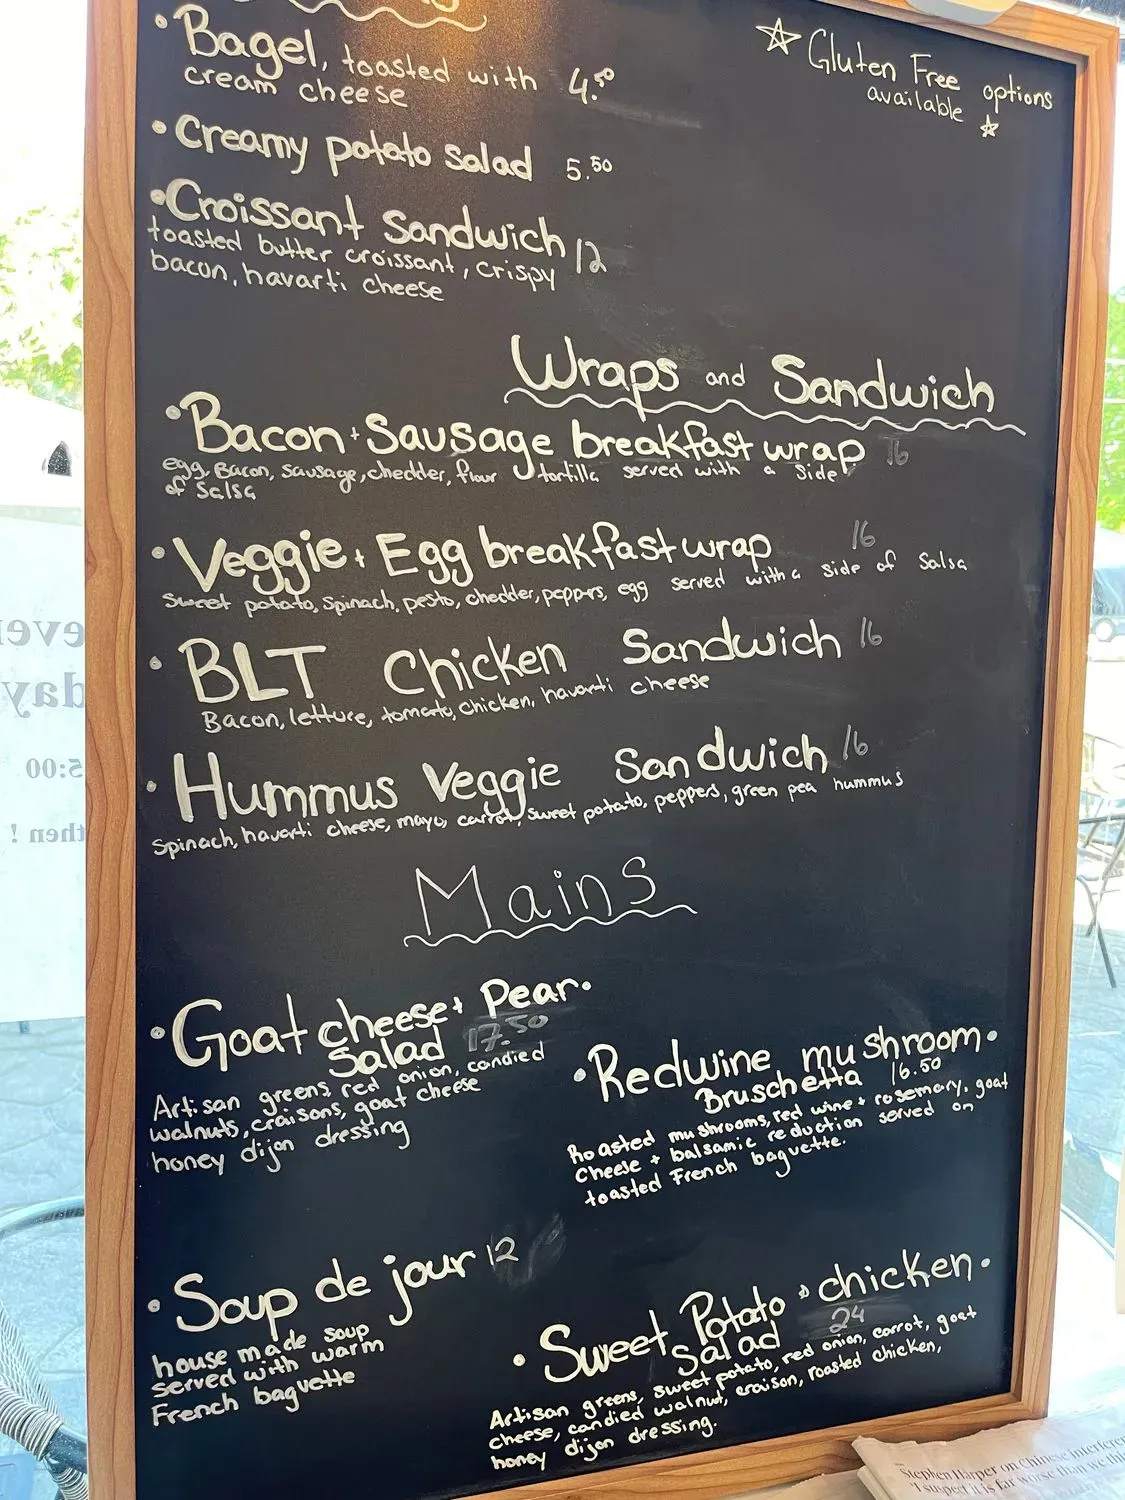 • Bagel, toasted with 4.50
cream cheese
☆ Gluten Free options
available ☆
• Creamy potato salad 5.50
• Croissant Sandwich 12
toasted butter croissant, crispy
bacon, havarti cheese
Wraps and Sandwich
• Bacon + Sausage breakfast wrap 16
egg, Bacon, sausage, chedder, flour tortilla served with a side
of salsa
• Veggie + Egg breakfast wrap 16
Sweet potato, spinach, pesto, chedder, peppers, egg served with a side of salsa
• BLT Chicken Sandwich 16
Bacon, lettuce, tomato, chicken, havarti cheese
• Hummus Veggie Sandwich 16
Spinach, havarti cheese, mayo, carrot, sweet potato, peppers, green pea hummus
Mains
• Goat cheese + Pear •
Salad 17.50
Artisan greens, red onion, candied
walnuts, craisons, goat cheese
honey dijon dressing
• Redwine mushroom •
Bruschetta 16.50
Roasted mushrooms, red wine + rosemary, goat
cheese + balsamic reduction served on
toasted French baguette.
• Soup de jour 12
house made soup
served with warm
French baguette
• Sweet Potato + chicken •
Salad 24
Artisan greens, sweet potato, red onion, carrot, goat
cheese, candied walnut, craison, roasted chicken,
honey dijon dressing.
Stephen Harper on Chinese interferen
'I suspect it is far worse than we thi
5:00
then !